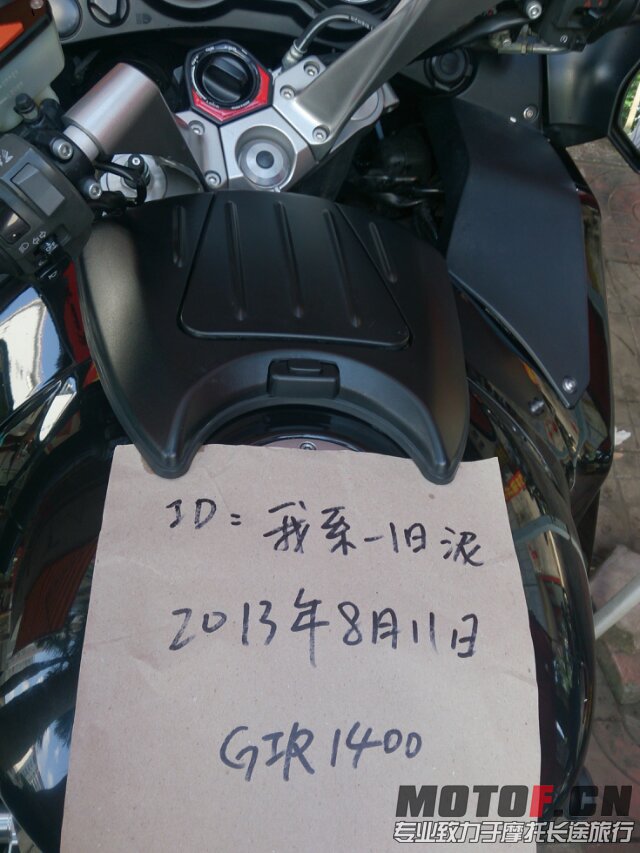 ID：我系一旧泥
2013年8月11日
GTR1400
MOTOF.CN
专业致力于摩托长途旅行